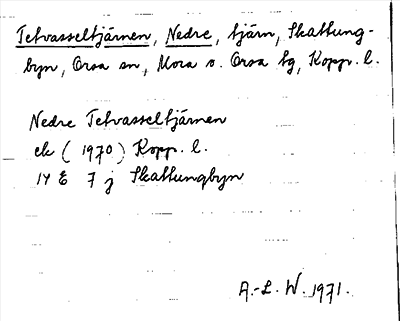 Tetvasseltjärnen, Nedre, tjärn, Skattung-
byn, Orsa sn, Mora o. Orsa tg, Kopp. l.
Nedre Tetvasseltjärnen
ek (1970) Kopp. l.
14 E 7 j Skattungbyn
A.-L. W. 1971.